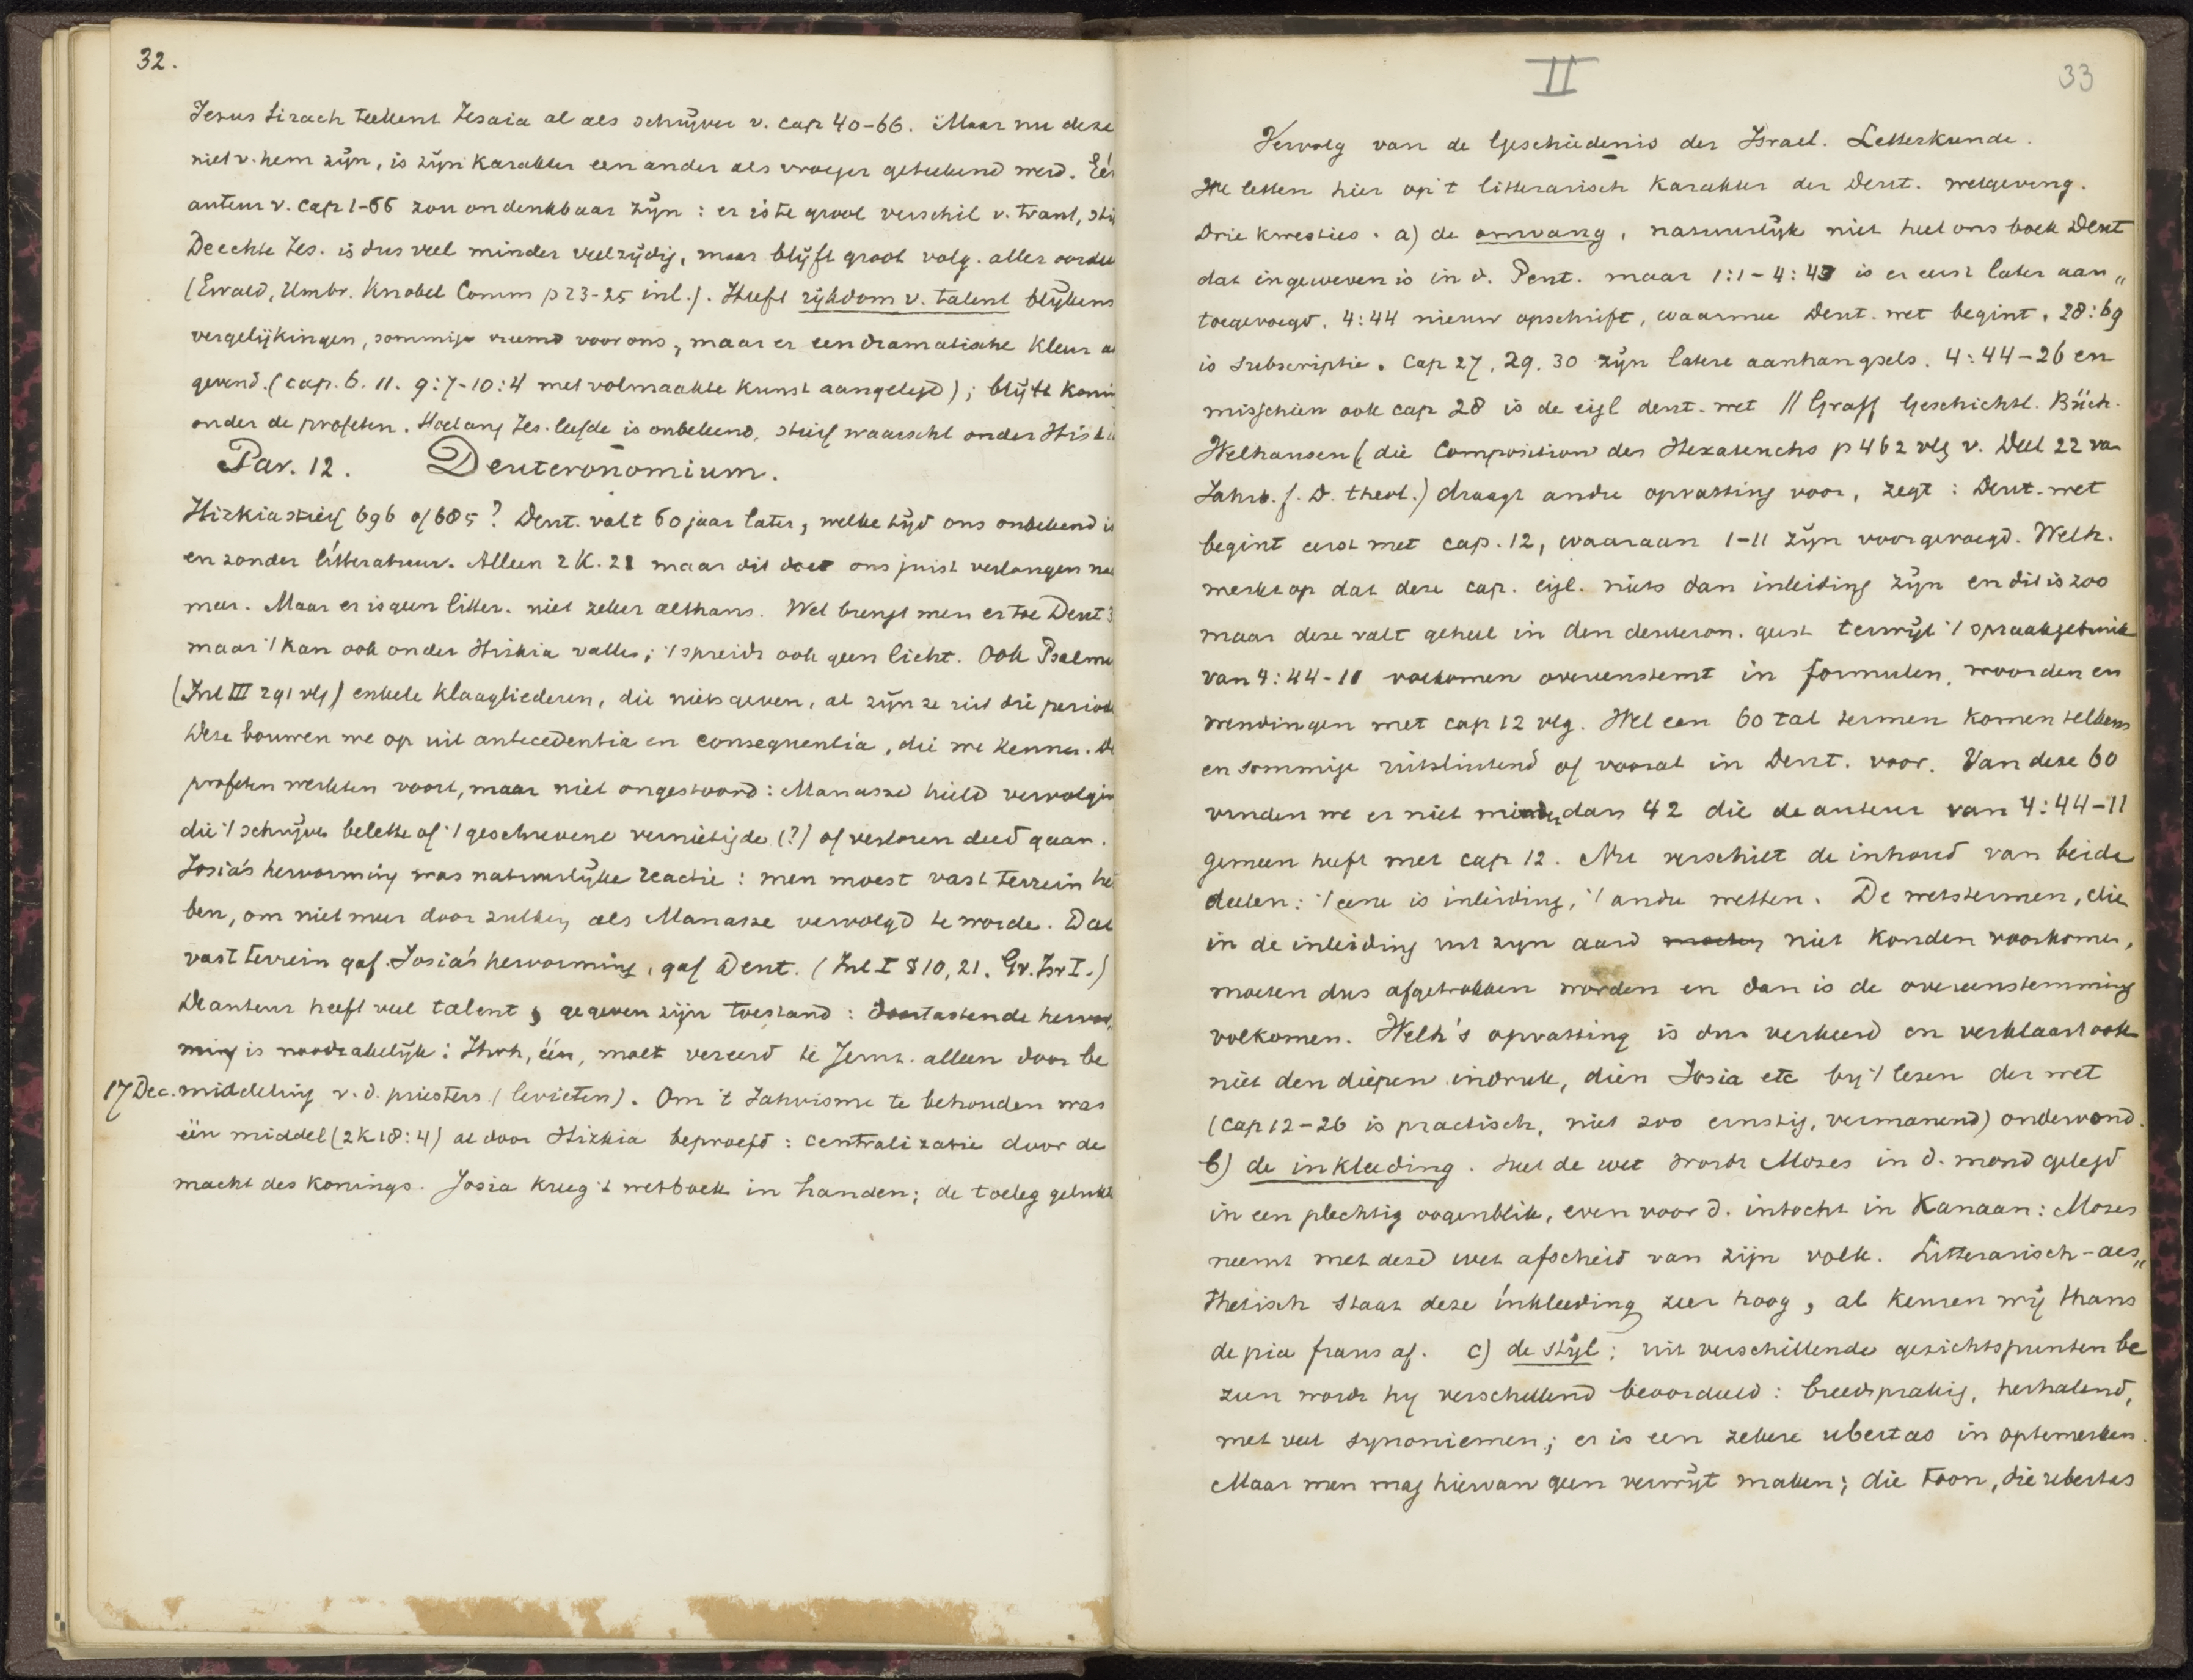 32.
Jezus Sirach teekent Jesaia al als schrijver v. cap 40-66. Maar nu deze
niet v. hem zijn, is zijn karakter een ander als vroeger geteekend werd. Eé
auteur v. cap 1-66 zou ondenkbaar zijn: er is te groot verschil v. trant, sti
De echte Jes. is dus veel minder veelzijdig, maar blijft groot volg. aller oordee
(Ewald, Umbr. Knobel Comm p 23-25 inl.). Heeft rijkdom v. talent blijkens
vergelijkingen, sommige vreemd voor ons, maar er een dramatische kleur a
gevend. (cap. 6. 11. 9:7-10:4 met volmaakte kunst aangelegd); blijft koni
onder de profeten. Hoelang Jes. leefde is onbekend, stierf waarschl onder Hiski
Par. 12. Deuteronomium.
Hizkia stierf 696 of 685? Deut. valt 60 jaar later, welke tijd ons onbekend is
en zonder litteratuur. Alleen 2 K. 21 maar dit doet ons juist verlangen na
meer. Maar er is geen litter. niet zeker althans. Wel brengt men er toe Deut 3
maar 't kan ook onder Hiskia vallen; 't spreidt ook geen licht. Ook Psalme
(Inl III 291 vlg) enkele klaagliederen, die niets geven, al zijn ze uit die periode
Deze bouwen we op uit antecedentia en consequentia, die we kennen. D
profeten werkten voort, maar niet ongestoord: Manasse hield vervolgin
die 't schrijven belette of 't geschrevene vernietigde (?) of verloren deed gaan.
Josia's hervorming was natuurlijke reactie: men moest vast terrein he
ben, om niet meer door zulken als Manasse vervolgd te worde. Dat
vast terrein gaf Josia's hervorming, gaf Deut. (Inl I § 10, 21. Gv. Isr I.)
De auteur heeft veel talent, gegeven zijn toestand: doortastende hervor„
ming is noodzakelijk: Jhvh, één, moet vereerd te Jeruz. alleen door be
17 Dec. middeling v. d. priesters (levieten). Om 't Jahvisme te behouden was
één middel (2 K 18:4) al door Hizkia beproefd: centralizatie door de
macht des konings. Josia kreeg 't wetboek in handen; de toeleg gelukt
II
33
Vervolg van de Geschiedenis der Israel. Letterkunde.
We letten hier op 't litterarisch karakter der Deut. wetgeving.
Drie kwesties. a) de omvang, natuurlijk niet heel ons boek Deut
dat ingeweven is in d. Pent. maar 1:1-4:43 is er eerst later aan„
toegevoegd. 4:44 nieuw opschrift, waarmee Deut. wet begint. 28:69
is subscriptie. Cap 27, 29. 30 zijn latere aanhangsels. 4:44-26 en
misschien ook cap 28 is de eigl deut. wet // Graff Geschichtl. Büch.
Welhausen (die Composition des Hexateuchs p 462 vlg v. Deel 22 va
Jahrb. f. D. theol.) draagt andre opvatting voor, zegt: Deut. wet
begint eerst met cap. 12, waaraan 1-11 zijn voorgevoegd. Welh.
merkt op dat deze cap. eigl. niets dan inleiding zijn en dit is zoo
maar deze valt geheel in den deuteron. geest terwijl 't spraakgebruik
van 4:44-11 volkomen overeenstemt in formulen, woorden en
wendingen met cap 12 vlg. Wel een 60 tal termen komen telkens
en sommige uitsluitend of vooral in Deut. voor. Van deze 60
vinden we er niet minder dan 42 die de auteur van 4:44-11
gemeen heeft met cap 12. Nu verschilt de inhoud van beide
deelen: 't eene is inleiding, 't andre wetten. De wetstermen, die
in de inleiding uit zijn aard mochten niet konden voorkomen,
moeten dus afgetrokken worden en dan is de overeenstemming
volkomen. Welh's opvatting is dus verkeerd en verklaart ook
niet den diepen indruk, dien Josia etc bij 't lezen der wet
(cap 12-26 is practisch, niet zoo ernstig, vermanend) ondervond.
b) de inkleeding. Heel de wet wordt Mozes in d. mond gelegd
in een plechtig oogenblik, even voor d. intocht in Kanaan: Mozes
neemt met deze wet afscheid van zijn volk. Litterarisch-aes„
thetisch staat deze inkleeding zeer hoog, al keuren wij thans
de pia fraus af. c) de stijl; uit verschillende gezichtspunten be
zien wordt hij verschillend beoordeeld: breedsprakig, herhalend,
met veel synoniemen; er is een zekere ubertas in optemerken.
Maar men mag hiervan geen verwijt maken; die toon, die ubertas